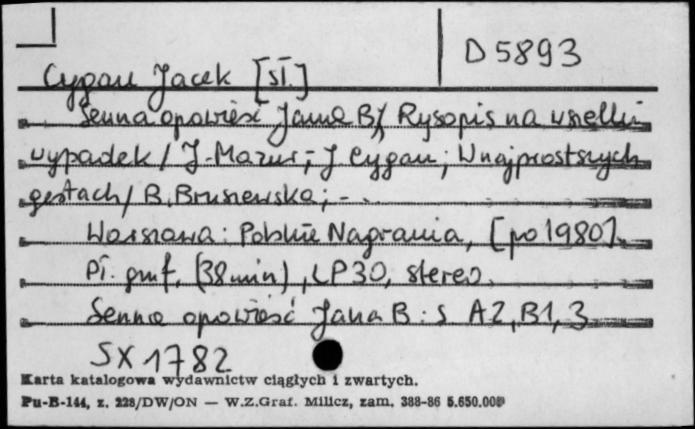 D 5893
Cygan Jacek [sł.]
Senna opowieść Jana B / Rysopis na wszelki
wypadek / J. Mazur ; J Cygan ; W najprostszych
gestach / B. Bruszewska ; - .
Warszawa : Polskie Nagrania, [po 1980].
Pł. gmf. (38 min), LP 30, stereo.
Senna opowieść Jana B : s A2, B1, 3
SX 1782
Karta katalogowa wydawnictw ciągłych i zwartych.
Pu-B-144, z. 228/DW/ON — W.Z.Graf. Milicz, zam. 388-86 5.650.000